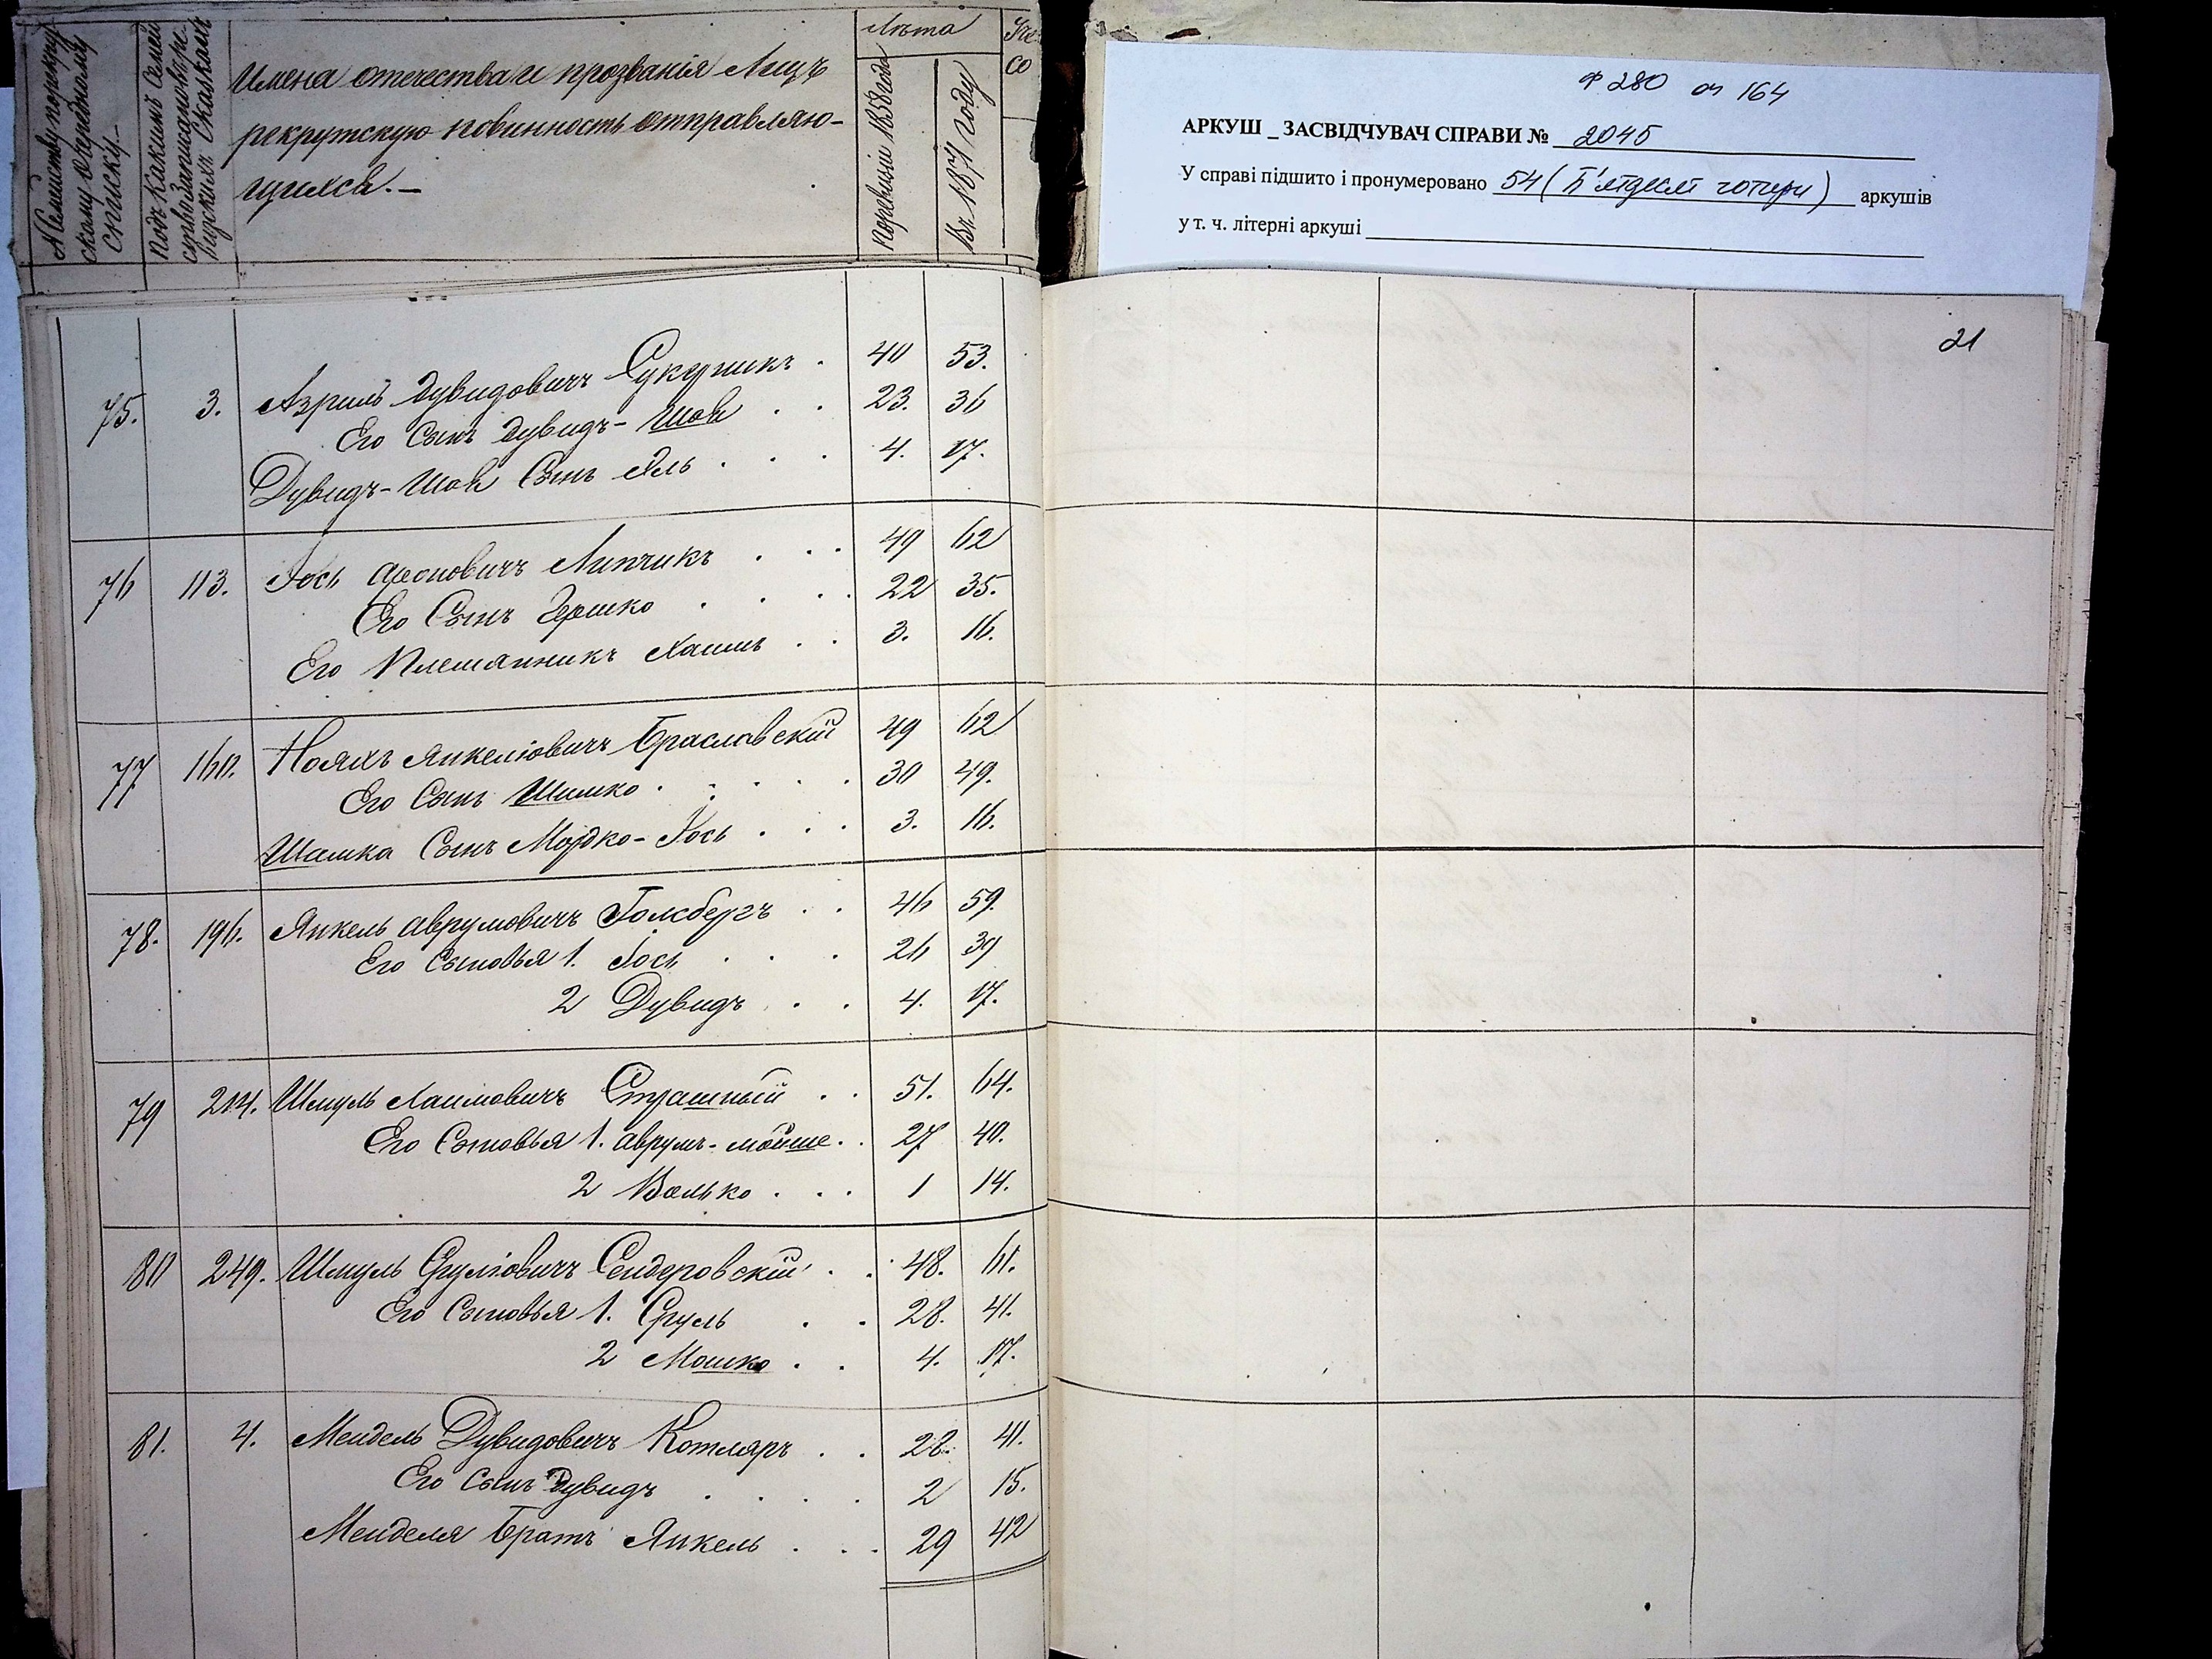 № семейству по рекрут-
скому очередному
списку.—
Подъ какимъ №мъ семей-
ство записано въ ре-
визскихъ сказкахъ
Имена отечества и прозванія Лицъ
рекрутскую повинность отправляю-
щихся.—
Лѣта
По ревизіи 1858 года
Въ 1871 году
Ф 280 оп 164
АРКУШ _ ЗАСВІДЧУВАЧ СПРАВИ № 2045
У справі підшито і пронумеровано 54 (П'ятдесят чотири) аркушів
у т. ч. літерні аркуші
21
75. 3. Азриль Дувидовичъ Сукерникъ . 40 53.
Его Сынъ Дувидъ-Шая . . 23. 36
Дувидъ-Шая Сынъ . . . 4. 17.
76 113. Іось Ароновичъ Липчикъ . . . 49 62
Его Сынъ Гершко . . . . 22 35.
Его Племянникъ Хаимъ . . 3. 16.
77 160. Нояхъ Янкеліовичъ Браславскій 49 62
Его Сынъ Шимко . . . . 30 49.
Шимка Сынъ Мордко-Іось . . . 3. 16.
78. 196. Янкель Аврумовичъ Голсбергъ . . 46 59.
Его Сыновья 1. Іось . . . 26 39
2 Дувидъ . . 4. 17.
79 214. Шмуль Хаимовичъ Страшный . . 51. 64.
Его Сыновья 1. Аврумъ-Мойше . . 27 40.
2 Волько . . . 1 14.
80 249. Шмуль Сруліовичъ Сендеровскій . . 48. 61.
Его Сыновья 1. Сруль . . 28. 41.
2 Мошко . . 4. 17.
81. 4. Мендель Дувидовичъ Котляръ . . 28. 41.
Его Сынъ Дувидъ . . . . 2 15.
Менделя Братъ Янкель . . . 29 42